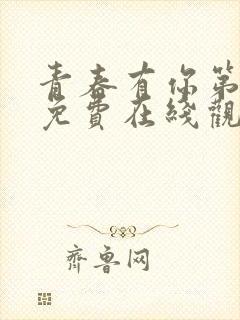 青春有你第
免費在綫觀
齊魯网